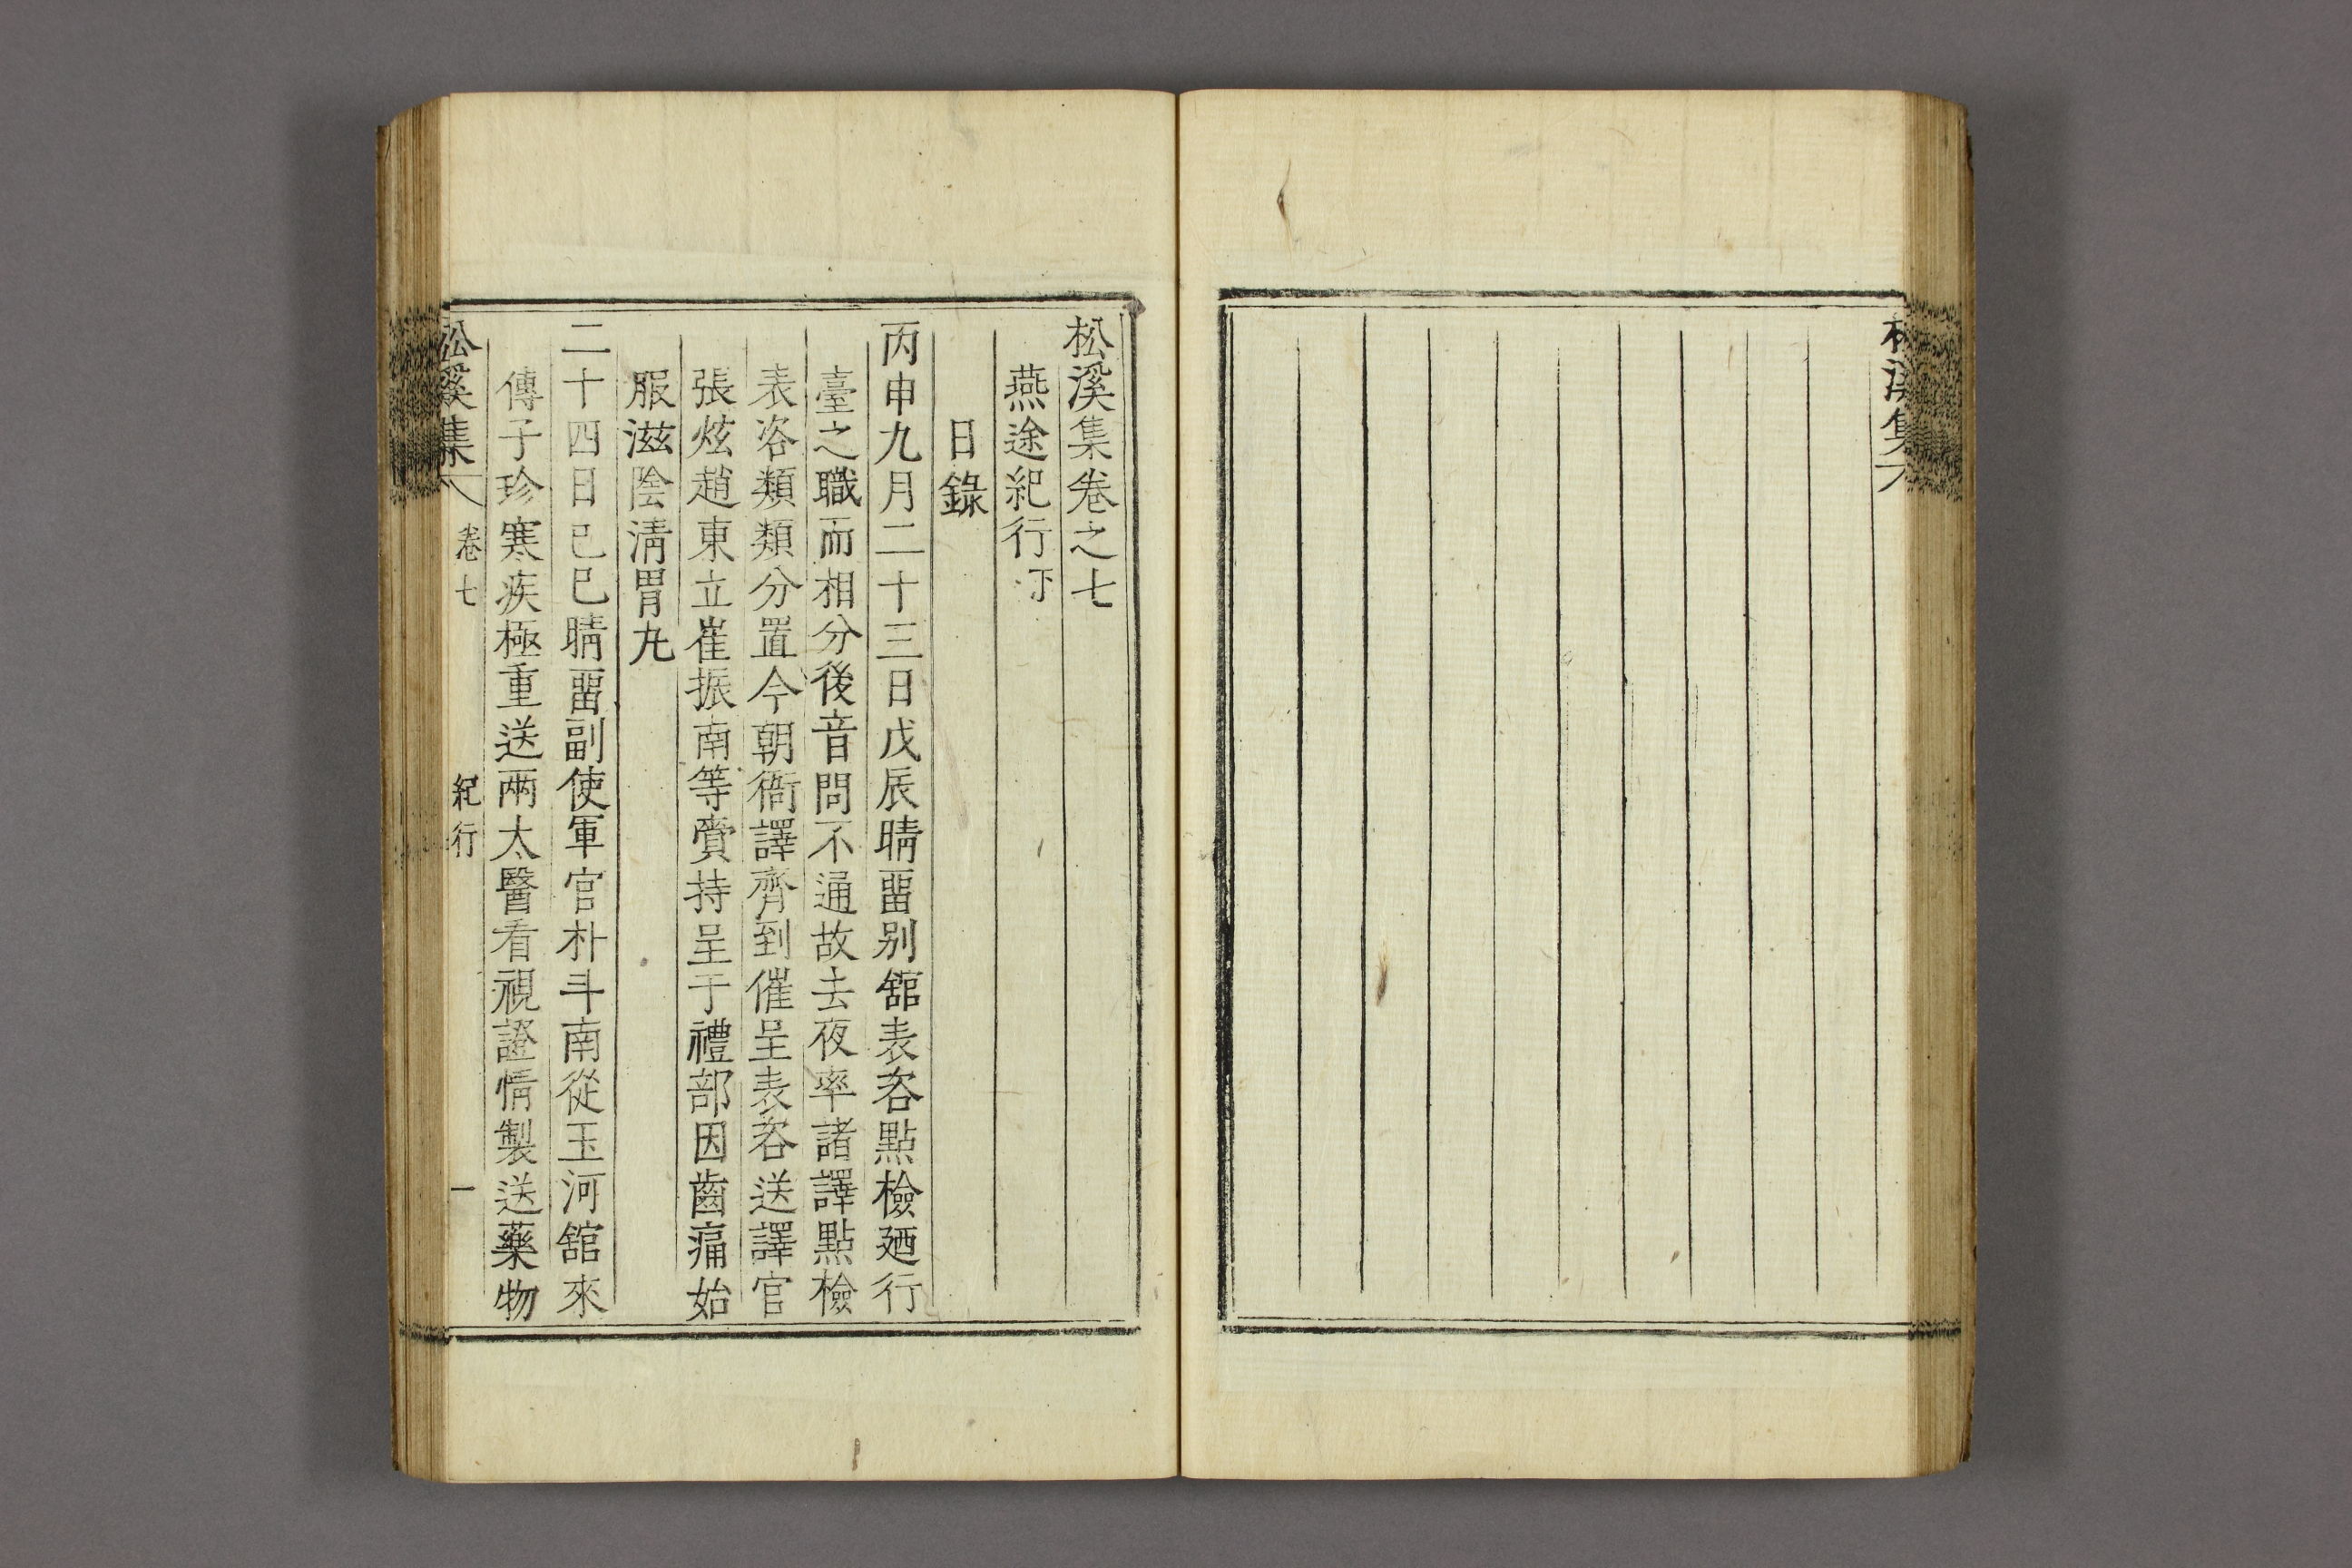 松溪集
松溪集卷之七
燕途紀行下
日錄
丙申九月二十三日戊辰晴畱别舘表咨點檢廼行
臺之職而相分後音問不通故去夜率諸譯點檢
表咨類類分置今朝衙譯齊到催呈表咨送譯官
張炫趙東立崔振南等賷持呈于禮部因齒痛始
服滋陰淸胃丸
二十四日己巳晴畱副使軍官朴斗南從玉河舘來
傳子珍寒疾極重送兩太醫看視證情製送藥物
松溪集 卷七 紀行 一